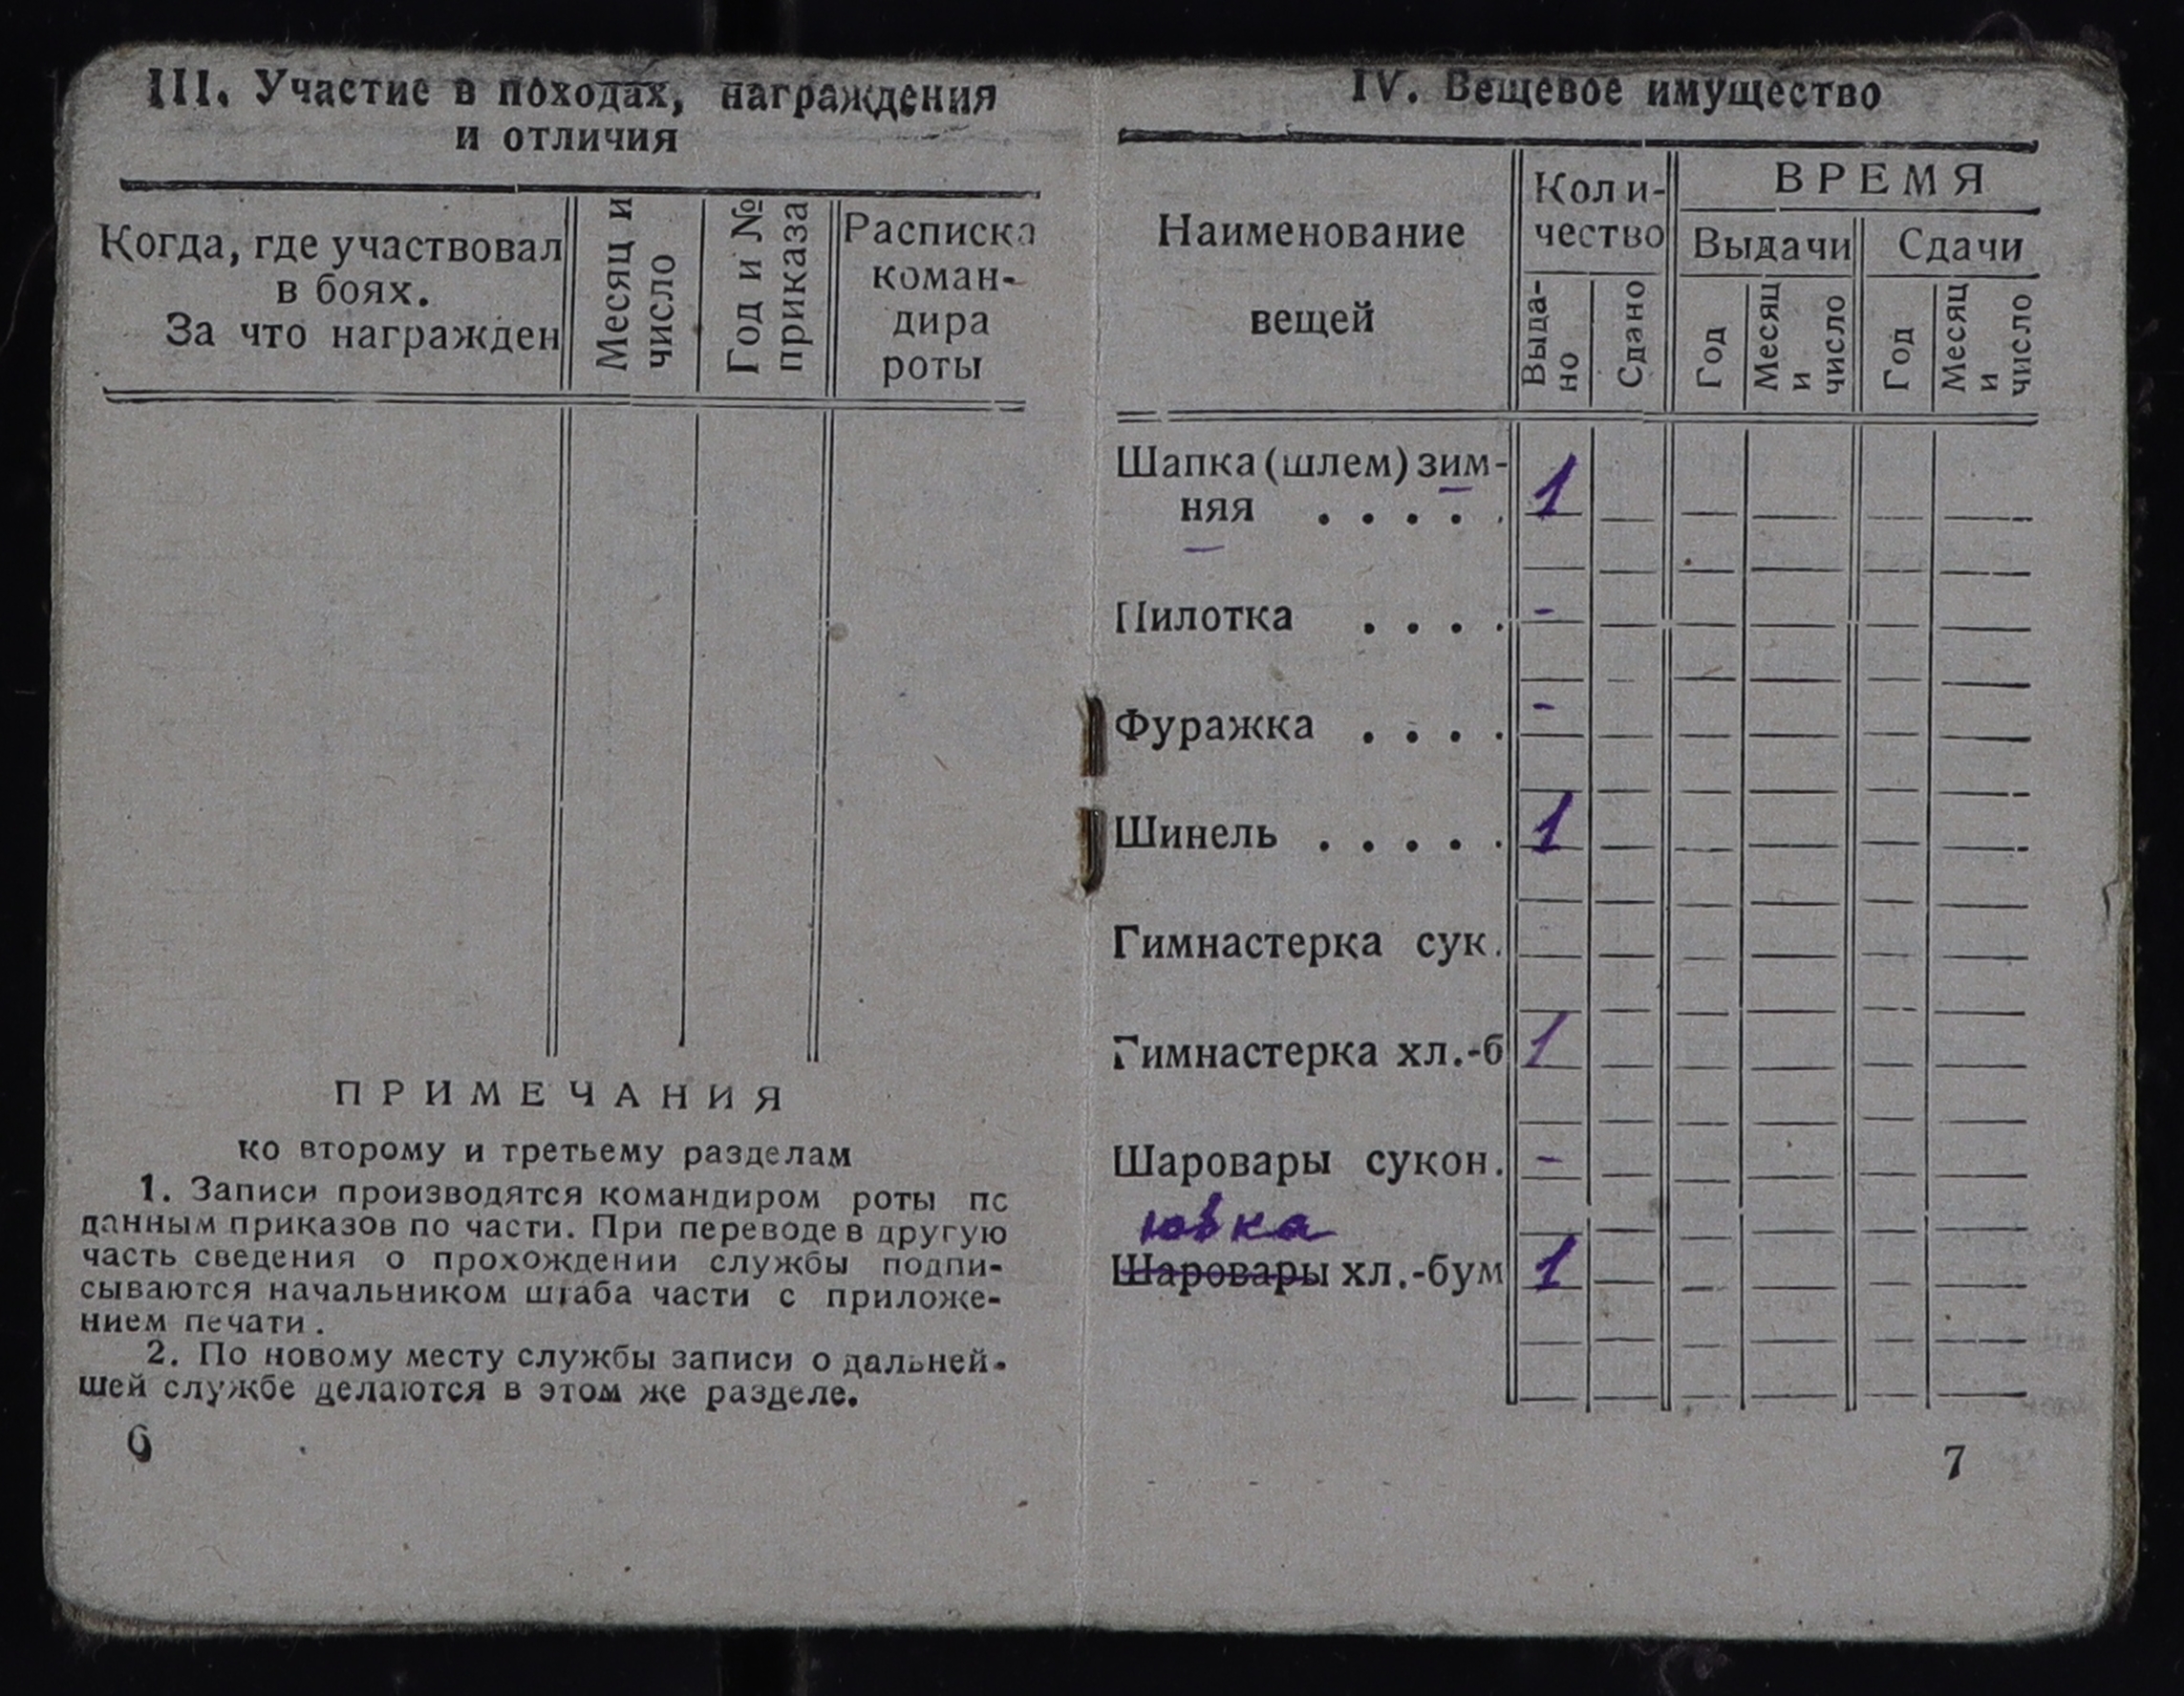 III. Участие в походах, награждения
и отличия
Когда, где участвовал
в боях.
За что награжден
Месяц и
число
Год и №
приказа
Расписка
коман-
дира
роты
ПРИМЕЧАНИЯ
ко второму и третьему разделам
1. Записи производятся командиром роты пс
данным приказов по части. При переводе в другую
часть сведения о прохождении службы подпи-
сываются начальником штаба части с приложе-
нием печати.
2. По новому месту службы записи о дальней-
шей службе делаются в этом же разделе.
6
IV. Вещевое имущество
Наименование
вещей
Коли-
чество
Выда-
но
Сдано
ВРЕМЯ
Выдачи
Сдачи
Год
Месяц
и
число
Год
Месяц
и
число
Шапка (шлем) зим-
няя . . . . . 1
Пилотка . . . . -
Фуражка . . . . -
Шинель . . . . . 1
Гимнастерка сук.
Гимнастерка хл.-б 1
Шаровары сукон. -
ювка
Шаровары хл.-бум 1
7